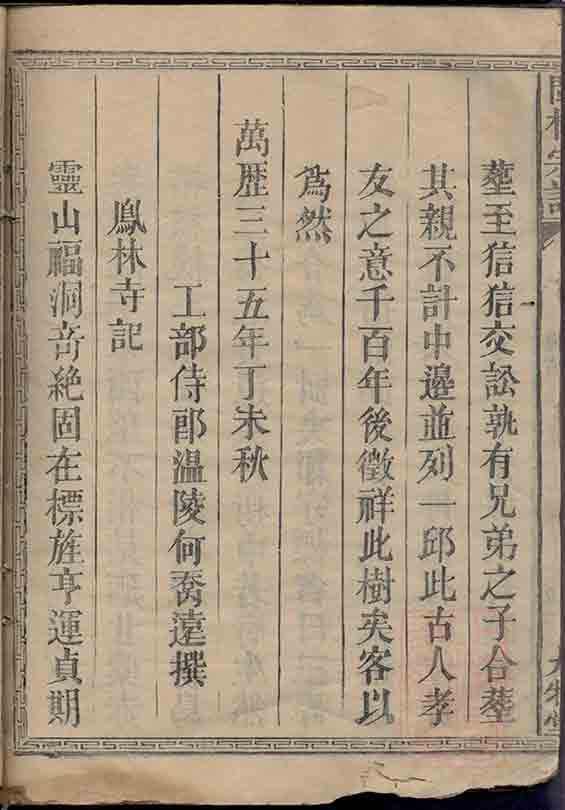 塟至狺狺交訟孰有兄弟之子合塟
其親不計中邊並列一邱此古人孝
友之意千百年後徵祥此樹矣客以
爲然
萬歷三十五年丁未秋
工部侍郎温陵何喬遠撰
鳳林寺記
靈山福洞奇絶固在標旌亨運貞期